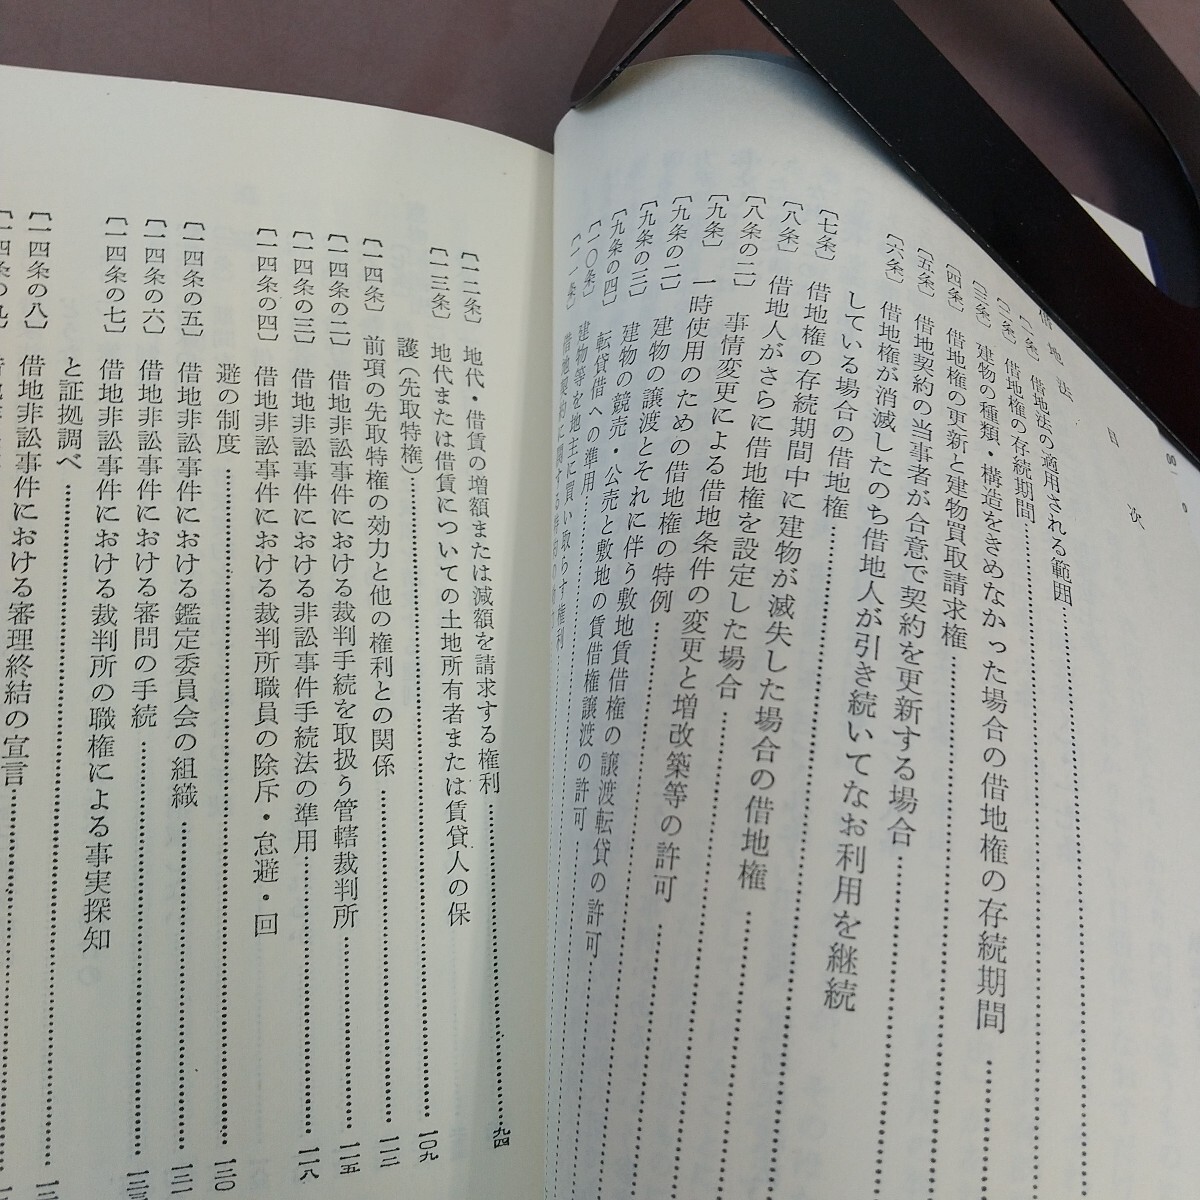 目次
借地法
〔一条〕 借地法の適用される範囲
〔二条〕 借地権の存続期間
〔三条〕 建物の種類・構造をきめなかった場合の借地権の存続期間
〔四条〕 借地権の更新と建物買取請求権
〔五条〕 借地契約の当事者が合意で契約を更新する場合
〔六条〕 借地権が消滅したのち借地人が引き続いてなお利用を継続
している場合の借地権
〔七条〕 借地権の存続期間中に建物が滅失した場合の借地権
〔八条〕 借地人がさらに借地権を設定した場合
〔八条の二〕 事情変更による借地条件の変更と増改築等の許可
〔九条〕 一時使用のための借地権の特例
〔九条の二〕 建物の譲渡とそれに伴う敷地賃借権の譲渡転貸の許可
〔九条の三〕 建物の競売・公売と敷地の賃借権譲渡の許可
〔九条の四〕 転貸借への準用
〔一〇条〕 建物等を地主に買い取らす権利
〔一一条〕
〔一二条〕 地代・借賃の増額または減額を請求する権利 九四
〔一三条〕 地代または借賃についての土地所有者または賃貸人の保
護(先取特権) 一〇九
〔一四条〕 前項の先取特権の効力と他の権利との関係 一一二
〔一四条の二〕 借地非訟事件における裁判手続を取扱う管轄裁判所 一一五
〔一四条の三〕 借地非訟事件における非訟事件手続法の準用 一一八
〔一四条の四〕 借地非訟事件における裁判所職員の除斥・忌避・回
避の制度 一二〇
〔一四条の五〕 借地非訟事件における鑑定委員会の組織
〔一四条の六〕 借地非訟事件における審問の手続
〔一四条の七〕 借地非訟事件における裁判所の職権による事実探知
と証拠調べ
〔一四条の八〕 借地非訟事件における審理終結の宣言
〔一四条の九〕